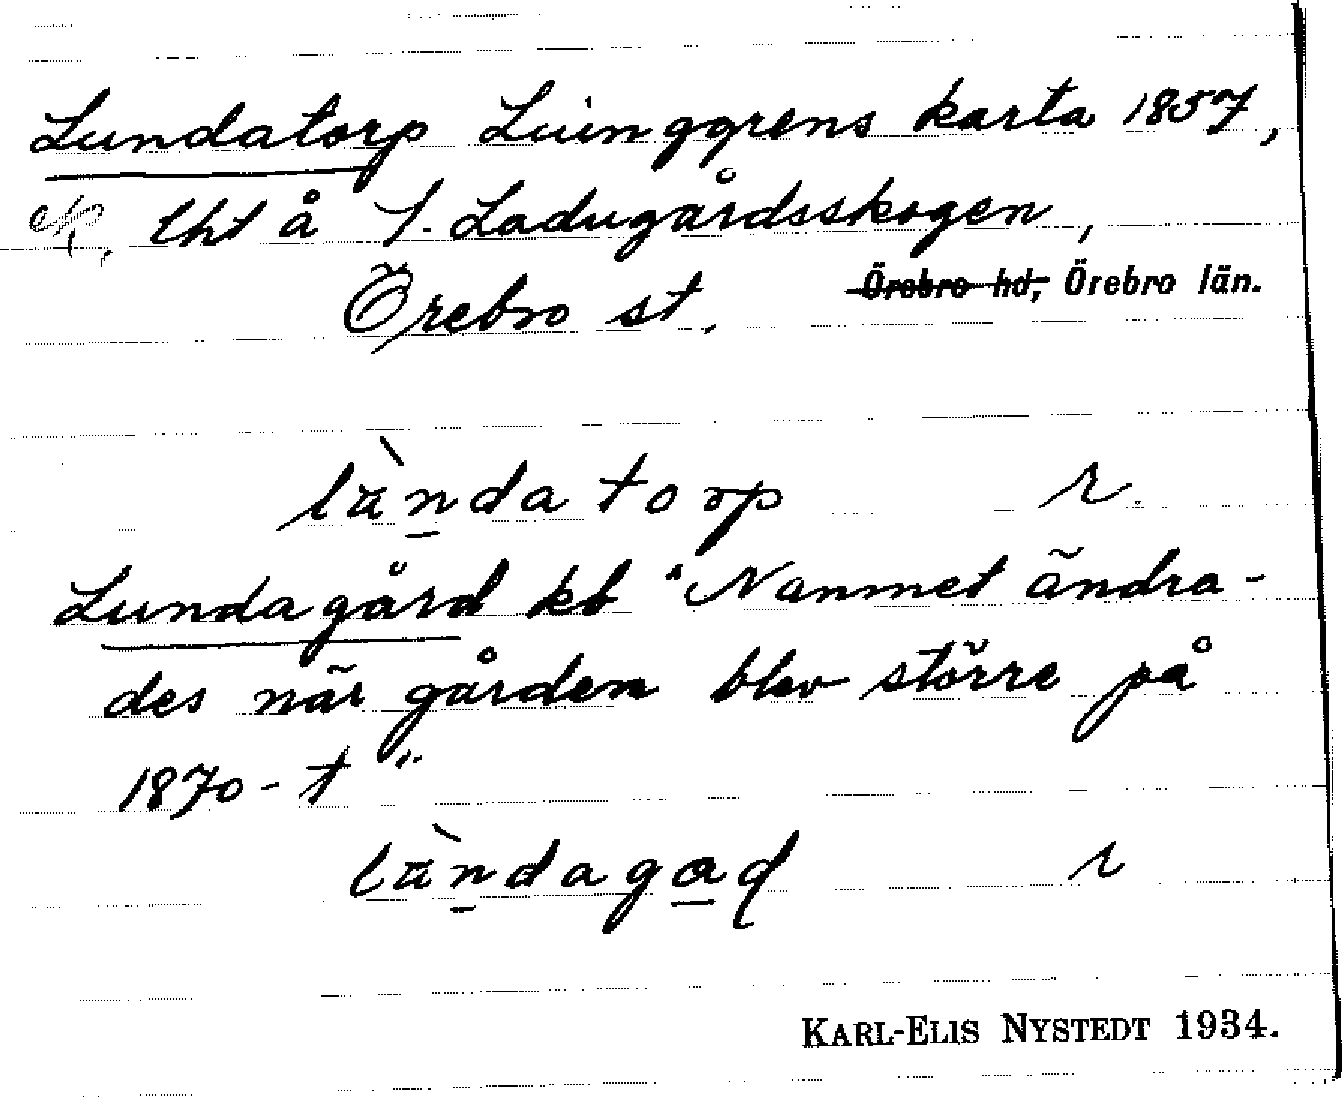 Lundatorp Luinggrens karta 1857,
lht å S. Ladugårdsskogen,
Örebro st. Örebro hd, Örebro län.
lùndatorp r.
Lundagård kb "Nammet ändra-
des när gården blev större på
1870-t"
lùndagaḍ r
KARL-ELIS NYSTEDT 1934.